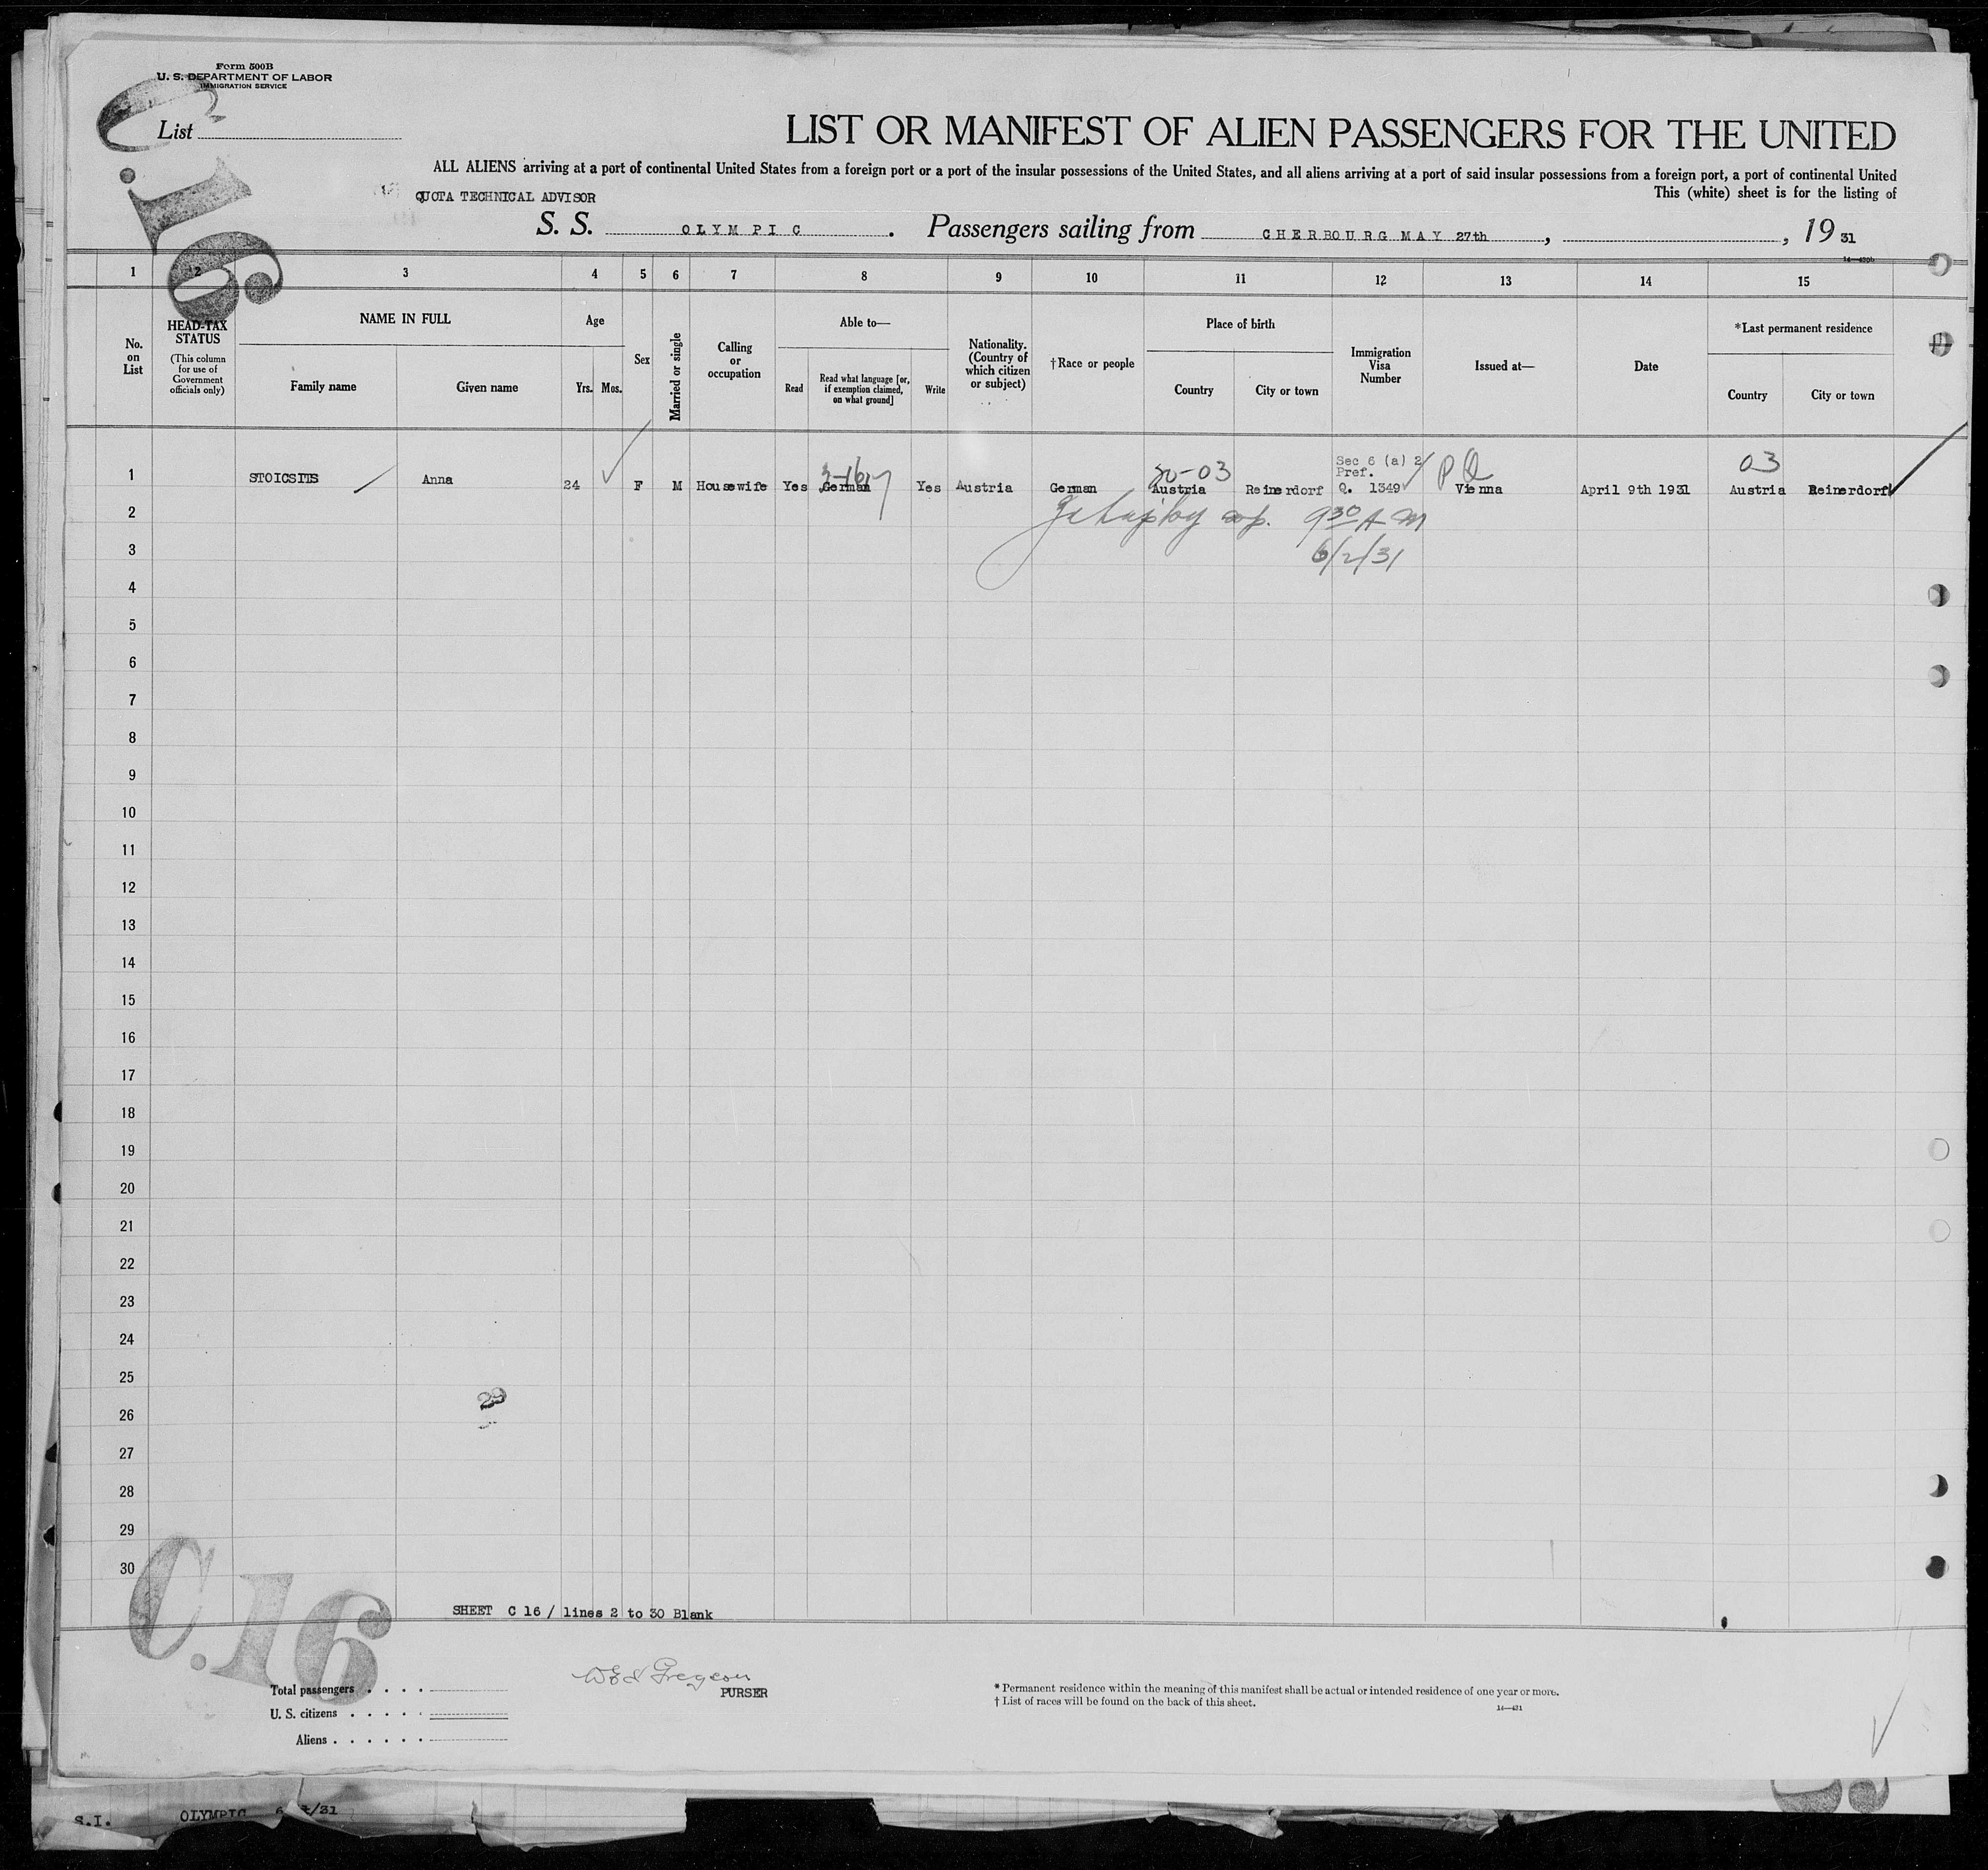 Form 500B
U. S. DEPARTMENT OF LABOR
IMMIGRATION SERVICE
C 16
List
LIST OR MANIFEST OF ALIEN PASSENGERS FOR THE UNITED
ALL ALIENS arriving at a port of continental United States from a foreign port or a port of the insular possessions of the United States, and all aliens arriving at a port of said insular possessions from a foreign port, a port of continental United
This (white) sheet is for the listing of
QUOTA TECHNICAL ADVISOR
S. S. OLYMPIC. Passengers sailing from CHERBOURG MAY 27th, , 19 31
1 2 3 4 5 6 7 8 9 10 11 12 13 14 15
No. on List
HEAD-TAX STATUS
(This column for use of Government officials only)
NAME IN FULL
Family name
Given name
Age
Yrs. Mos.
Sex
Married or single
Calling or occupation
Able to—
Read
Read what language [or, if exemption claimed, on what ground]
Write
Nationality. (Country of which citizen or subject)
†Race or people
Place of birth
Country
City or town
Immigration Visa Number
Issued at—
Date
*Last permanent residence
Country
City or town
20-03
Sec 6 (a) 2
Pref.
P Q
03
1 Anna 24 F M Housewife Yes German Yes Austria German Austria Reinerdorf Q. 1349 Vienna April 9th 1931 Austria Reinerdorf
2 9 30 A M
3 6/2/31
4
5
6
7
8
9
10
11
12
13
14
15
16
17
18
19
20
21
22
23
24
25
29
26
27
28
29
30
C.16
SHEET C 16 / lines 2 to 30 Blank
PURSER
Total passengers
U. S. citizens
Aliens
* Permanent residence within the meaning of this manifest shall be actual or intended residence of one year or more.
† List of races will be found on the back of this sheet.
14—421
S.I. OLYMPIC